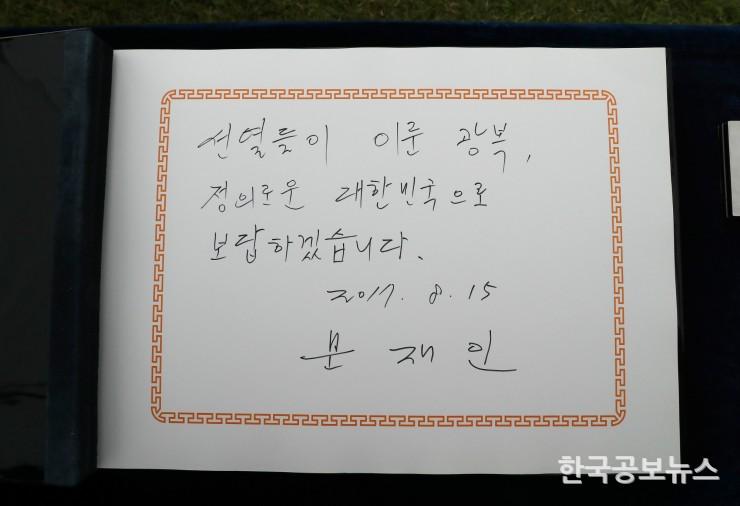 선열들이 이룬 광복,
정의로운 대한민국으로
보답하겠습니다.
2017. 8. 15
문재인
한국공보뉴스